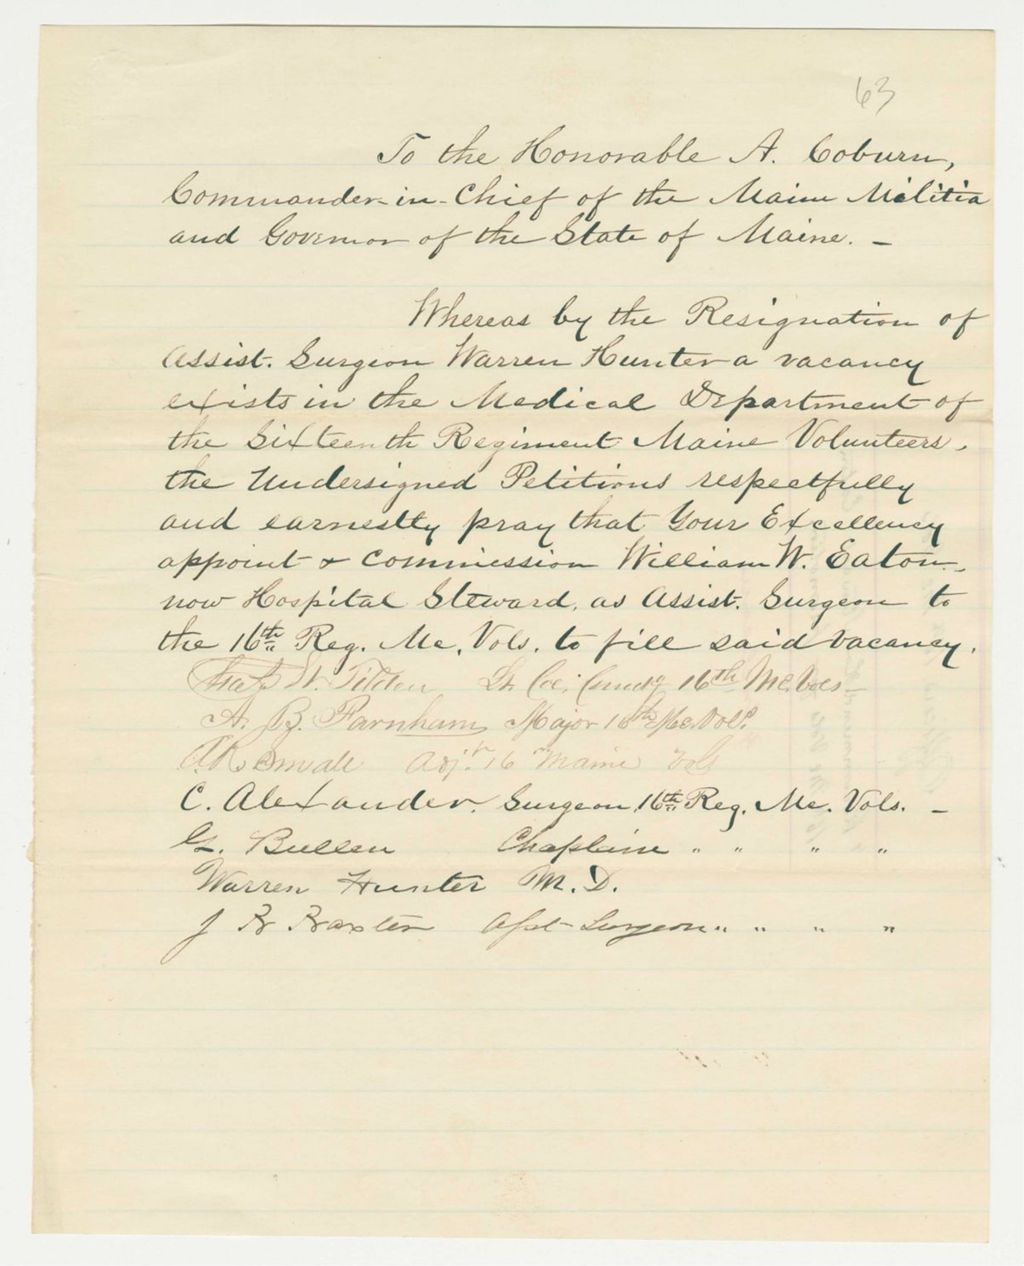 63
To the Honorable A. Coburn,
Commander-in-Chief of the Maine Militia
and Governor of the State of Maine. –
Whereas by the Resignation of
Assist. Surgeon Warren Hunter a vacancy
exists in the Medical Department of
the Sixteenth Regiment Maine Volunteers,
the Undersigned Petitions respectfully
and earnestly pray that Your Excellency
appoint & commission William W. Eaton,
now Hospital Steward, as Assist. Surgeon to
the 16th Reg. Me. Vols. to fill said vacancy.
W. Tilden Lt. Col. Comdg 16th Me. Vols
A. B. Farnham Major 16th Me. Vols.
A. R. Small Adjt. 16 Maine Vols
C. Alexander. Surgeon, 16th Reg. Me. Vols. –
G. Bullen Chaplain " " " "
Warren Hunter M.D.
J B Baxter Asst Surgeon " " " "